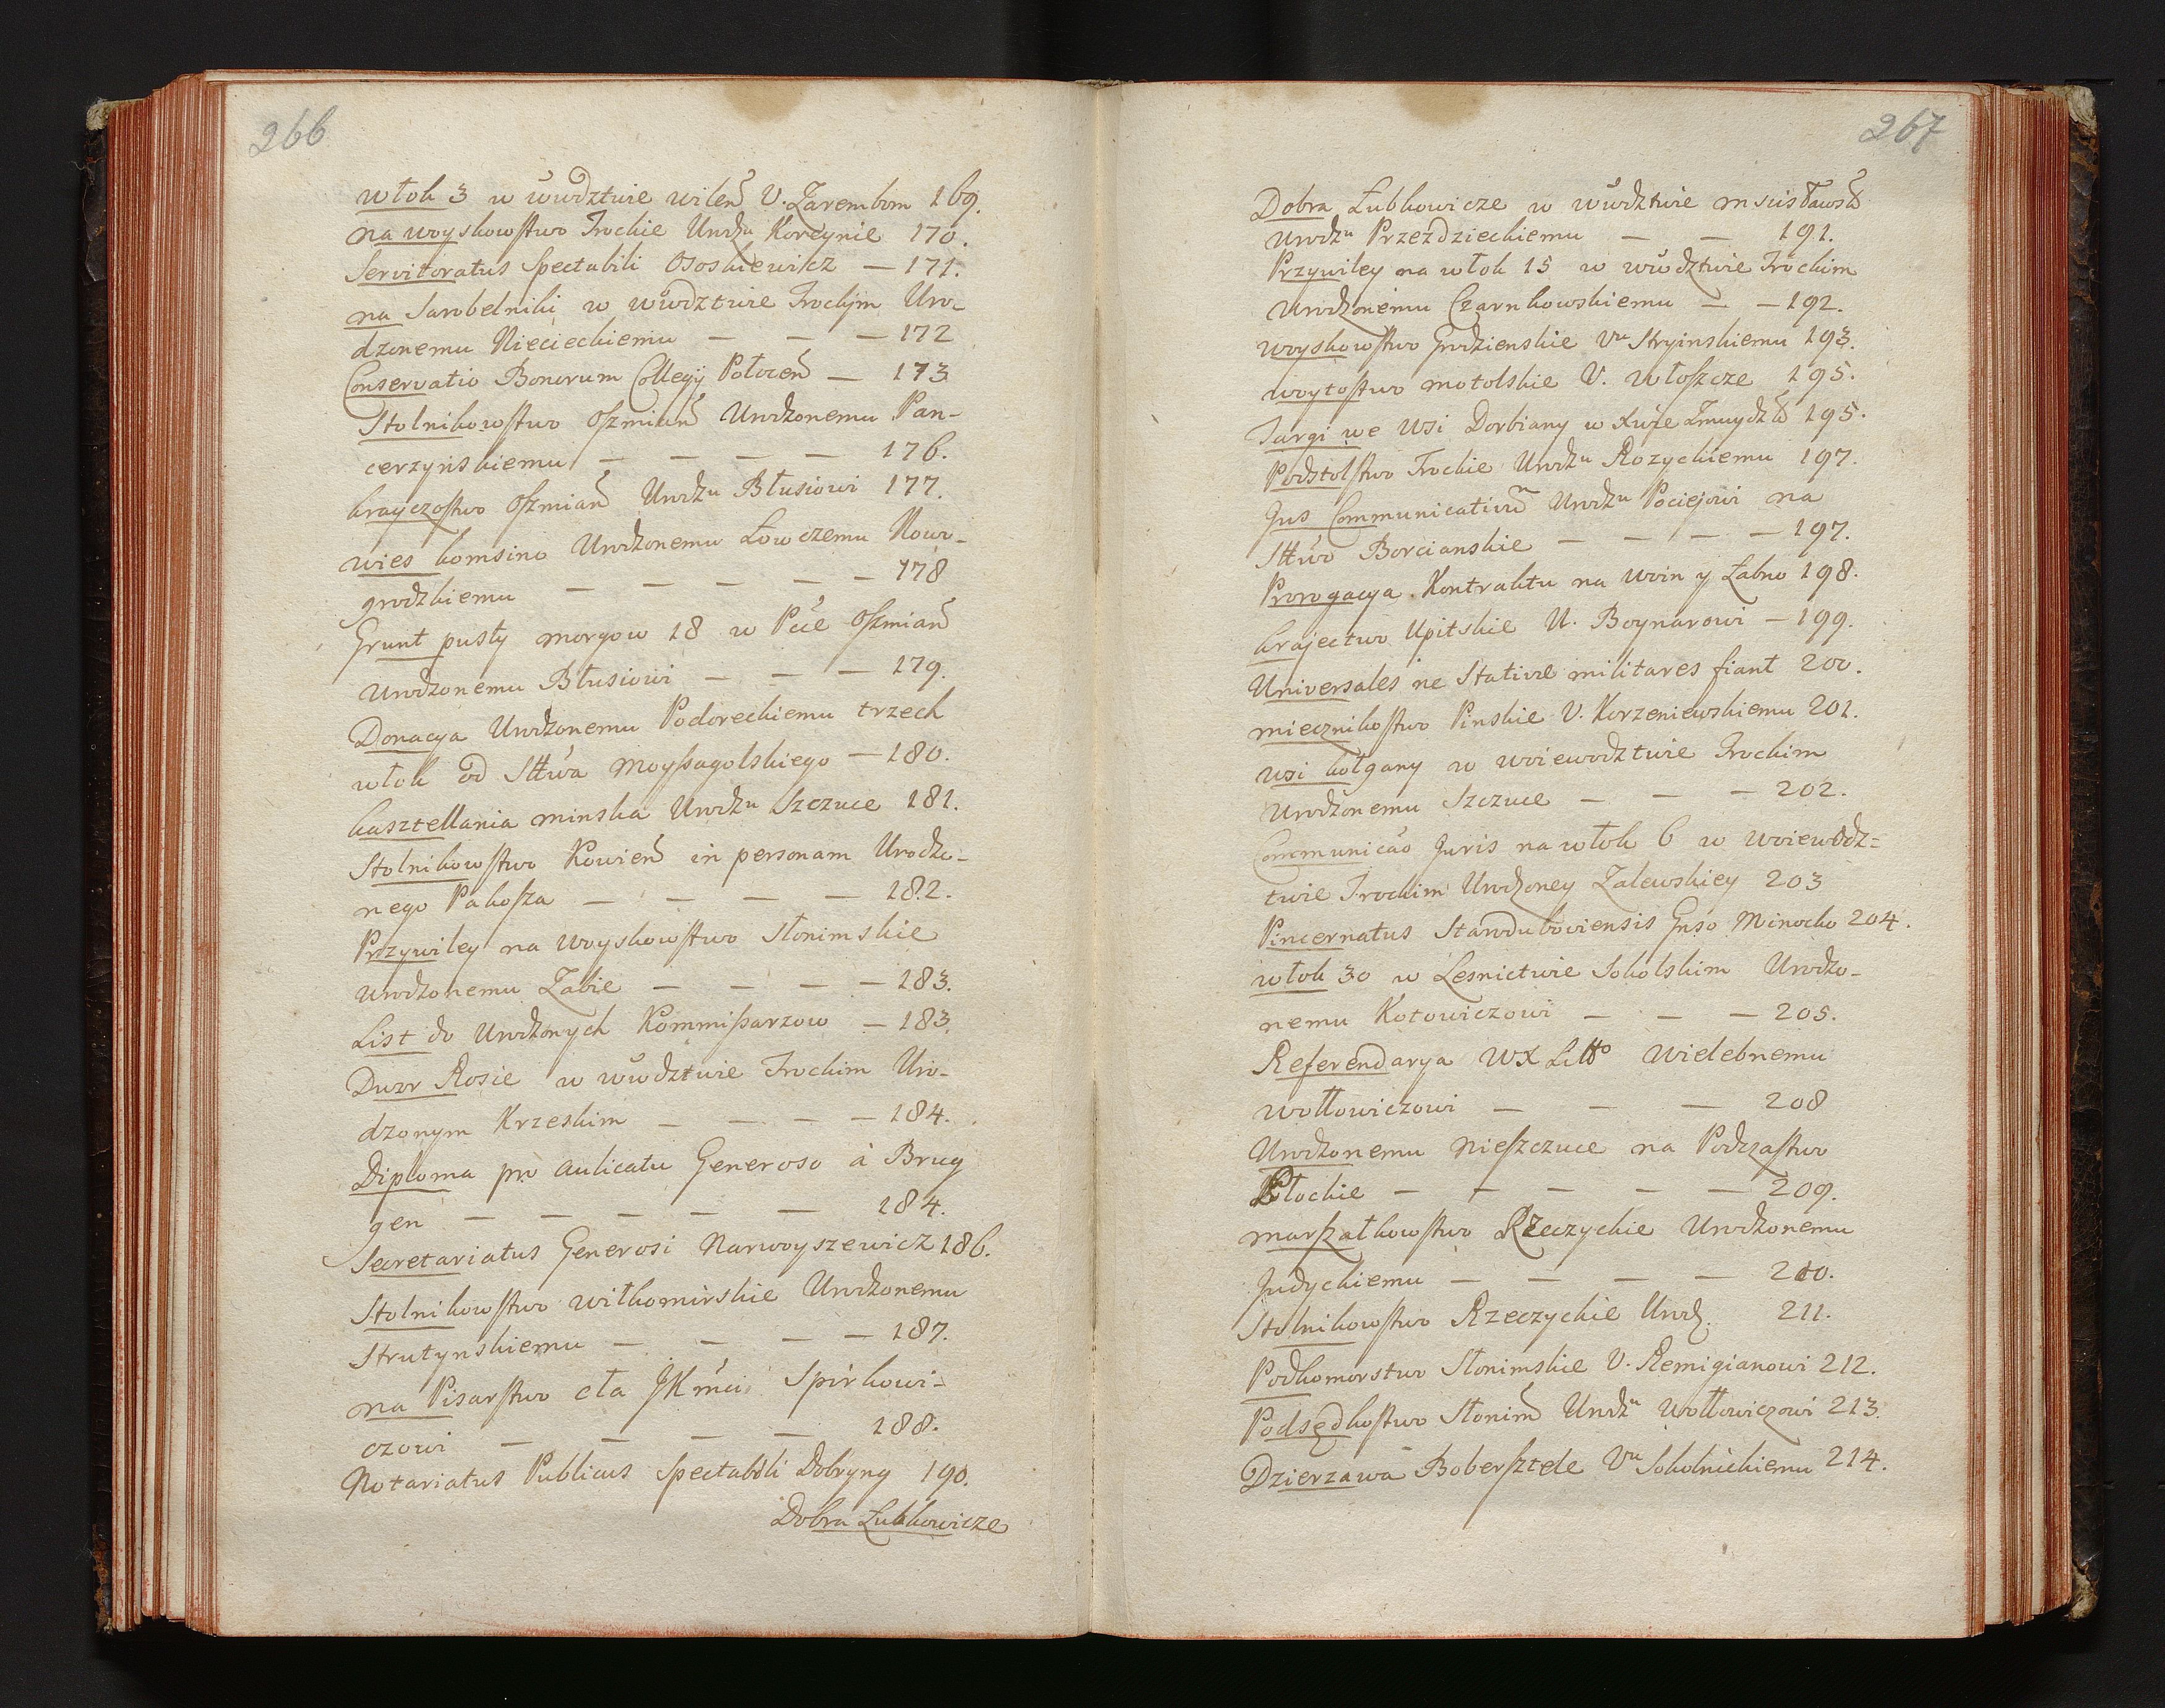 266
włok 3 w wwdztwie wileń U. Zarembom 169.
na woyskowstwo Trockie Urodzu Korczynie 170.
Servitoratus Spectabili Ososkiewicz — 171.
na Sarobelniki w wwdztwie Trockim Uro-
dzonemu Niecieckiemu — — — 172
Conservatio Bonorum Collegÿ Połoceń — 173
Stolnikowstwo Oszmiań Urodzonemu Pan-
cerzyńskiemu — — — — 176.
krayczostwo Oszmiań Urodzu Błusiowi 177.
wies komsino Urodzonemu Łowczemu Nowo-
grodzkiemu — — — — — 178
Grunt pusty morgow 18 w Pcie Oszmiań
Urodzonemu Błusiowi — — — 179.
Donacya Urodzonemu Podoreckiemu trzech
włok od Sttwa Moyszagolskiego — 180.
kasztellania minska Urodzu Szczuce 181.
Stolnikowstwo Kowień in personam Urodzo-
nego Pakosza — — — — 182.
Przywiley na Woyskowstwo Słonimskie
urodzonemu Zabie — — — — 183.
List do Urodzonych Kommissarzow — 183.
Dwor Rosie w wwdztwie Trockim Uro-
dzonym Krzeskim — — — — 184.
Diploma pro aulicatu Generoso à Brug
gen — — — — — 184.
Secretariatus Generosi Narwoyszewicz 186.
Stolnikowstwo wiłkomirskie Urodzonemu
Strutynskiemu — — — — 187.
na Pisarstwo cła JKmci Spirkowi-
czowi — — — — 188.
Notariatus Publicus Spectabili Dobryny 190.
Dobra Łubkowicze
267
Dobra Łubkowicze w wwdztwie msüsławsk
Urodzu Przezdzieckiemu — — 191.
Przywiley na włok 15 w wwdztwie Trockim
Urodzonemu Czarnkowskiemu — — 192.
woyskowstwo Grodzienskie Uu Stryinskiemu 193.
woytostwo motolskie U. Włoszcze 195.
Targi we Wsi Dorbiany w Xwie Zmuydzk 195.
Podstolstwo Trockie Urodzu Rozyckiemu 197.
Jus Communicativum Urodzu Pociejowi na
Sttwo Borcianskie — — — — 197.
Prorogacya Kontraktu na Woin y Łabno 198.
krajectwo Upitskie U. Boynarowi — 199.
Universales ne Stativæ militares fiant 200.
miecznikostwo Pinskie U. Korzeniewskiemu 201.
wsi kołgany w woiewodztwie Trockim
Urodzonemu Szczuce — — — 202.
Communicao Juris na włok 6 w woiewodz=
twie Trockim Urodzoney Zalewskiey 203
Pincernatus Starodubowiensis Gnso Minocko 204.
włok 30 w Lesnictwie Sokolskim Urodzo-
nemu Kotowiczowi — — — 205.
Referendarya WX Litto Wielebnemu
Wołłowiczowi — — — 208
Urodzonemu Nieszczuce na Podczastwo
Płockie — — — — — 209.
marszałkowstwo Rzeczyckie Urodzonemu
Judyckiemu — — — — 210.
Stolnikowstwo Rzeczyckie Urodz. 211.
Podkomorstwo Słonimskie U. Remigianowi 212.
Podsędkostwo Słonim Urodzu Wołłowiczowi 213.
Dzierzawa Bobersztele Uu Sokolnickiemu 214.